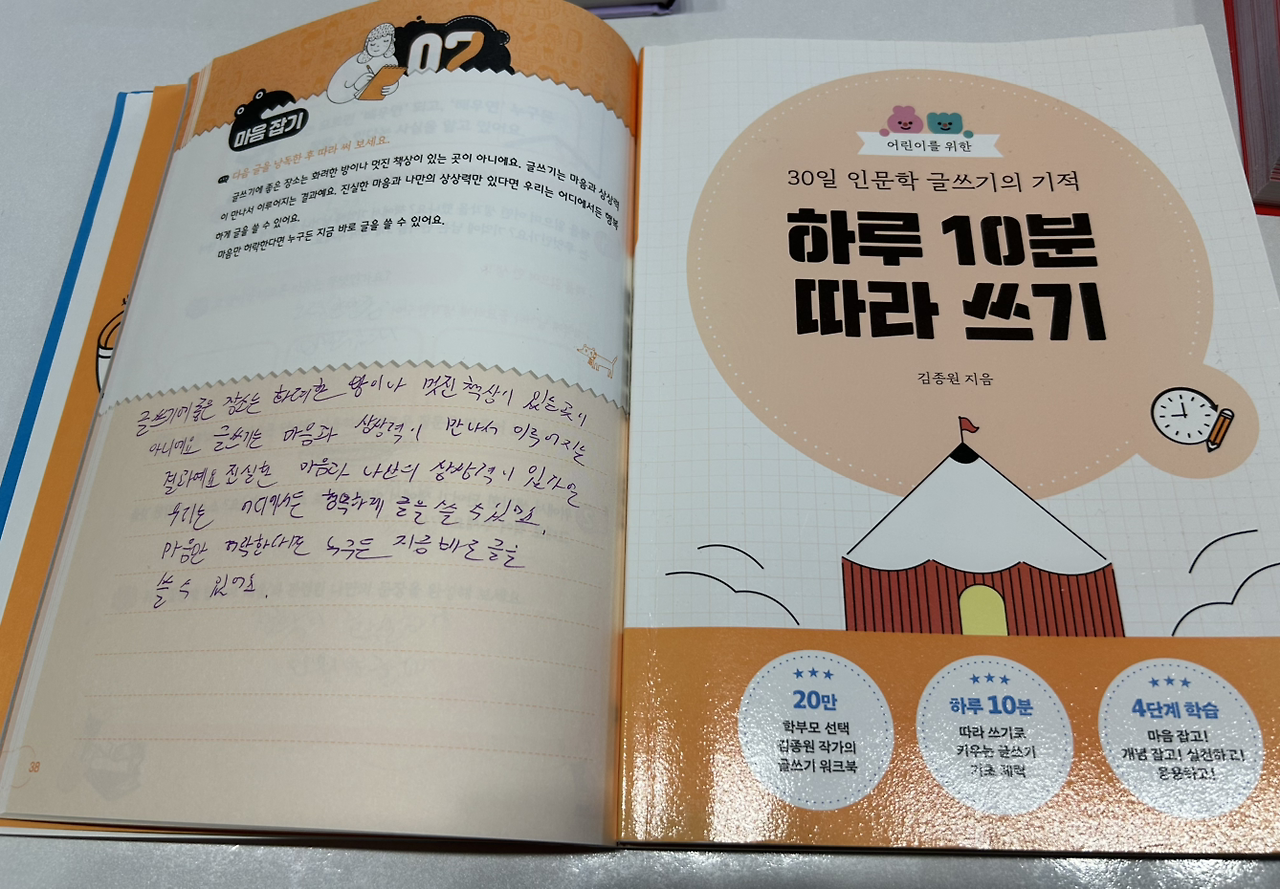 07
마음 잡기
다음 글을 낭독한 후 따라 써 보세요.
글쓰기에 좋은 장소는 화려한 방이나 멋진 책상이 있는 곳이 아니에요. 글쓰기는 마음과 상상력
이 만나서 이루어지는 결과예요. 진실한 마음과 나만의 상상력만 있다면 우리는 어디에서든 행복
하게 글을 쓸 수 있어요.
마음만 허락한다면 누구든 지금 바로 글을 쓸 수 있어요.
글쓰기에 좋은 장소는 화려한 방이나 멋진 책상이 있는곳이
아니예요 글쓰기는 마음과 상상력이 만나서 이루어지는
결과예요 진실한 마음과 상상력이
우리는 어디에서든 행복하게 글을 쓸 수 있어요.
마음만 허락한다면 누구든 지금 바로 글을
쓸 수 있어요.
38
어린이를 위한
30일 인문학 글쓰기의 기적
하루 10분
따라 쓰기
김종원 지음
20만
학부모 선택
김종원 작가의
글쓰기 워크북
하루 10분
따라 쓰기로
키우는 글쓰기
기초 체력
4단계 학습
마음 잡고!
개념 잡고! 실전하고!
응용하고!